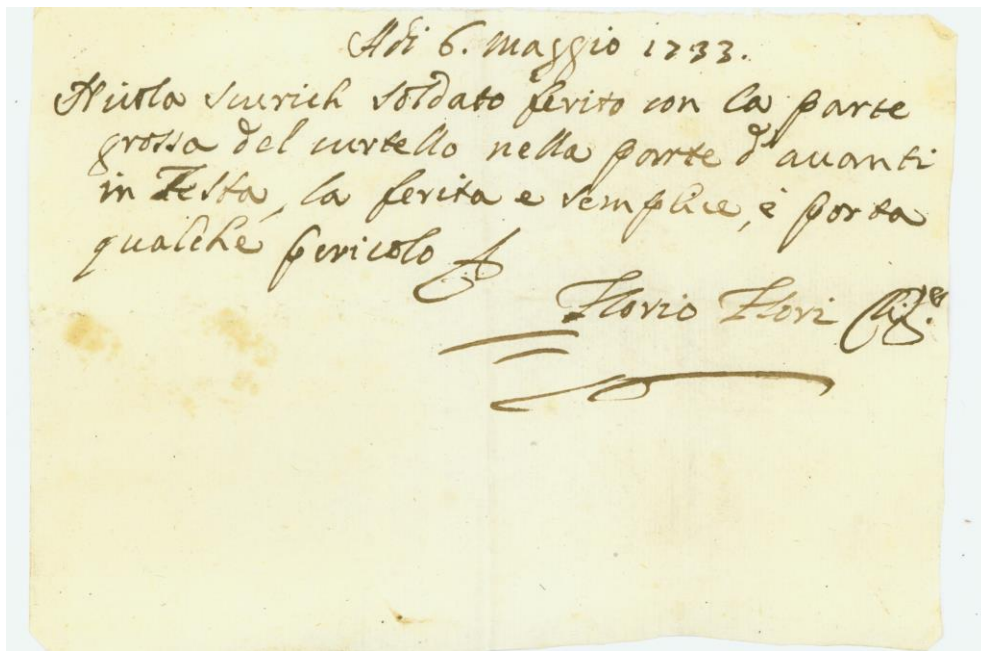 Adi 6. maggio 1733.
Nicola Scurich soldato ferito con la parte
grossa del curtello nella parte d'auanti
in Testa, la ferita e semplice, è porta
qualche pericolo
Florio Flori